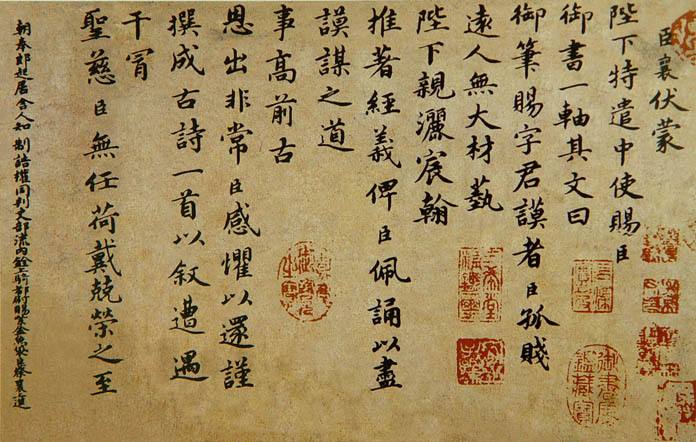 臣襄伏蒙
陛下特遣中使賜臣
御書一軸其文曰
御筆賜字君謨者臣孤賤
遠人無大材藝
陛下親灑宸翰
推著經義俾臣佩誦以盡
謨謀之道
事高前古
恩出非常臣感懼以還謹
撰成古詩一首以叙遭遇
干冒
聖慈臣無任荷戴兢榮之至
朝奉郎起居舍人知 制誥權同判吏部流內銓上騎都尉賜紫金魚袋蔡襄進